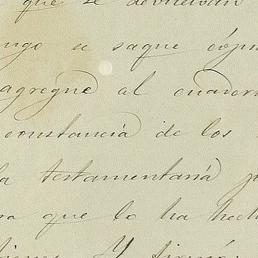 que se devuelvan
engo se saque cópia
agregue al cuaderno
constancia de los
la testamentaría p
ra que lo ha hecho
Y firmó.